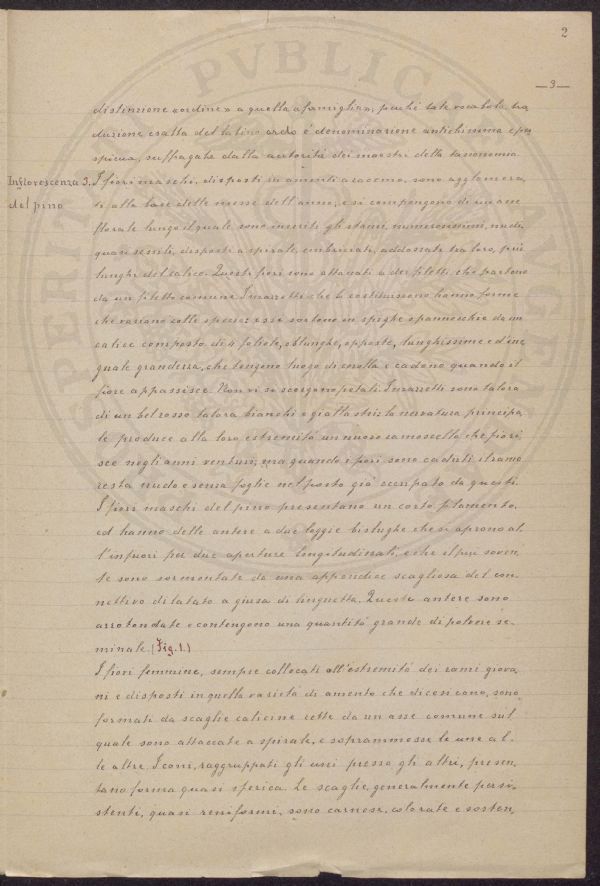 2
— 3 —
distinzione «ordine» a quella «famiglia», perchè tale vocabolo, tra
duzione esatta del latino ordo è denominazione antichissima e per
spicua, suffragata dalla autorità dei maestri della tassonomia.
Inflorescenza 3. I fiori maschi, disposti in amenti a racemo, sono agglomera,
del pino
ti alla base delle messe dell'anno, e si compongono di un asse
florale lungo il quale sono inseriti gli stami, numerosissimi, nudi,
quasi sessili, disposti a spirale, embriciati, addossati tra loro, più
lunghi del calice. Questi fiori sono attaccati a dei filetti, che partono
da un filetto comune. I mazzetti che li costituiscono hanno forme
che variano colle specie: essi sortono in spighe o pannocchie da un
calice composto di 4 foliole, oblunghe, opposte, lunghissime ed ine
guale grandezza, che tengono luogo di corolla e cadono quando il
fiore appassisce. Non vi si scorgono petali. I mazzetti sono talora
di un bel rosso talora bianchi o giallastri; la nervatura principa,
le produce alla loro estremità un nuovo ramoscello che fiori,
sce negli anni venturi, ma quando i fiori sono caduti il ramo
resta nudo e senza foglie nel posto già occupato da questi.
I fiori maschi del pino presentano un corto filamento,
ed hanno delle antere a due loggie bislughe che si aprono al,
l'infuori per due aperture longitudinali, e che il più soven,
te sono sormontate da una appendice scagliosa del con,
nettivo dilatato a guisa di linguetta. Queste antere sono
arrotondate e contengono una quantità grande di polvere se,
minale. (Fig. 1.)
I fiori femmine, sempre collocati all'estremità dei rami giova,
ni e disposti in quella varietà di amento che dicesi cono, sono
formati da scaglie calicine rette da un asse comune sul
quale sono attaccate a spirale, e soprammosse le une al,
le altre. I coni, raggruppati gli uni presso gli altri, presen,
tano forma quasi sferica. Le scaglie, generalmente persi,
stenti, quasi reniformi, sono carnose, colorate e sosten,